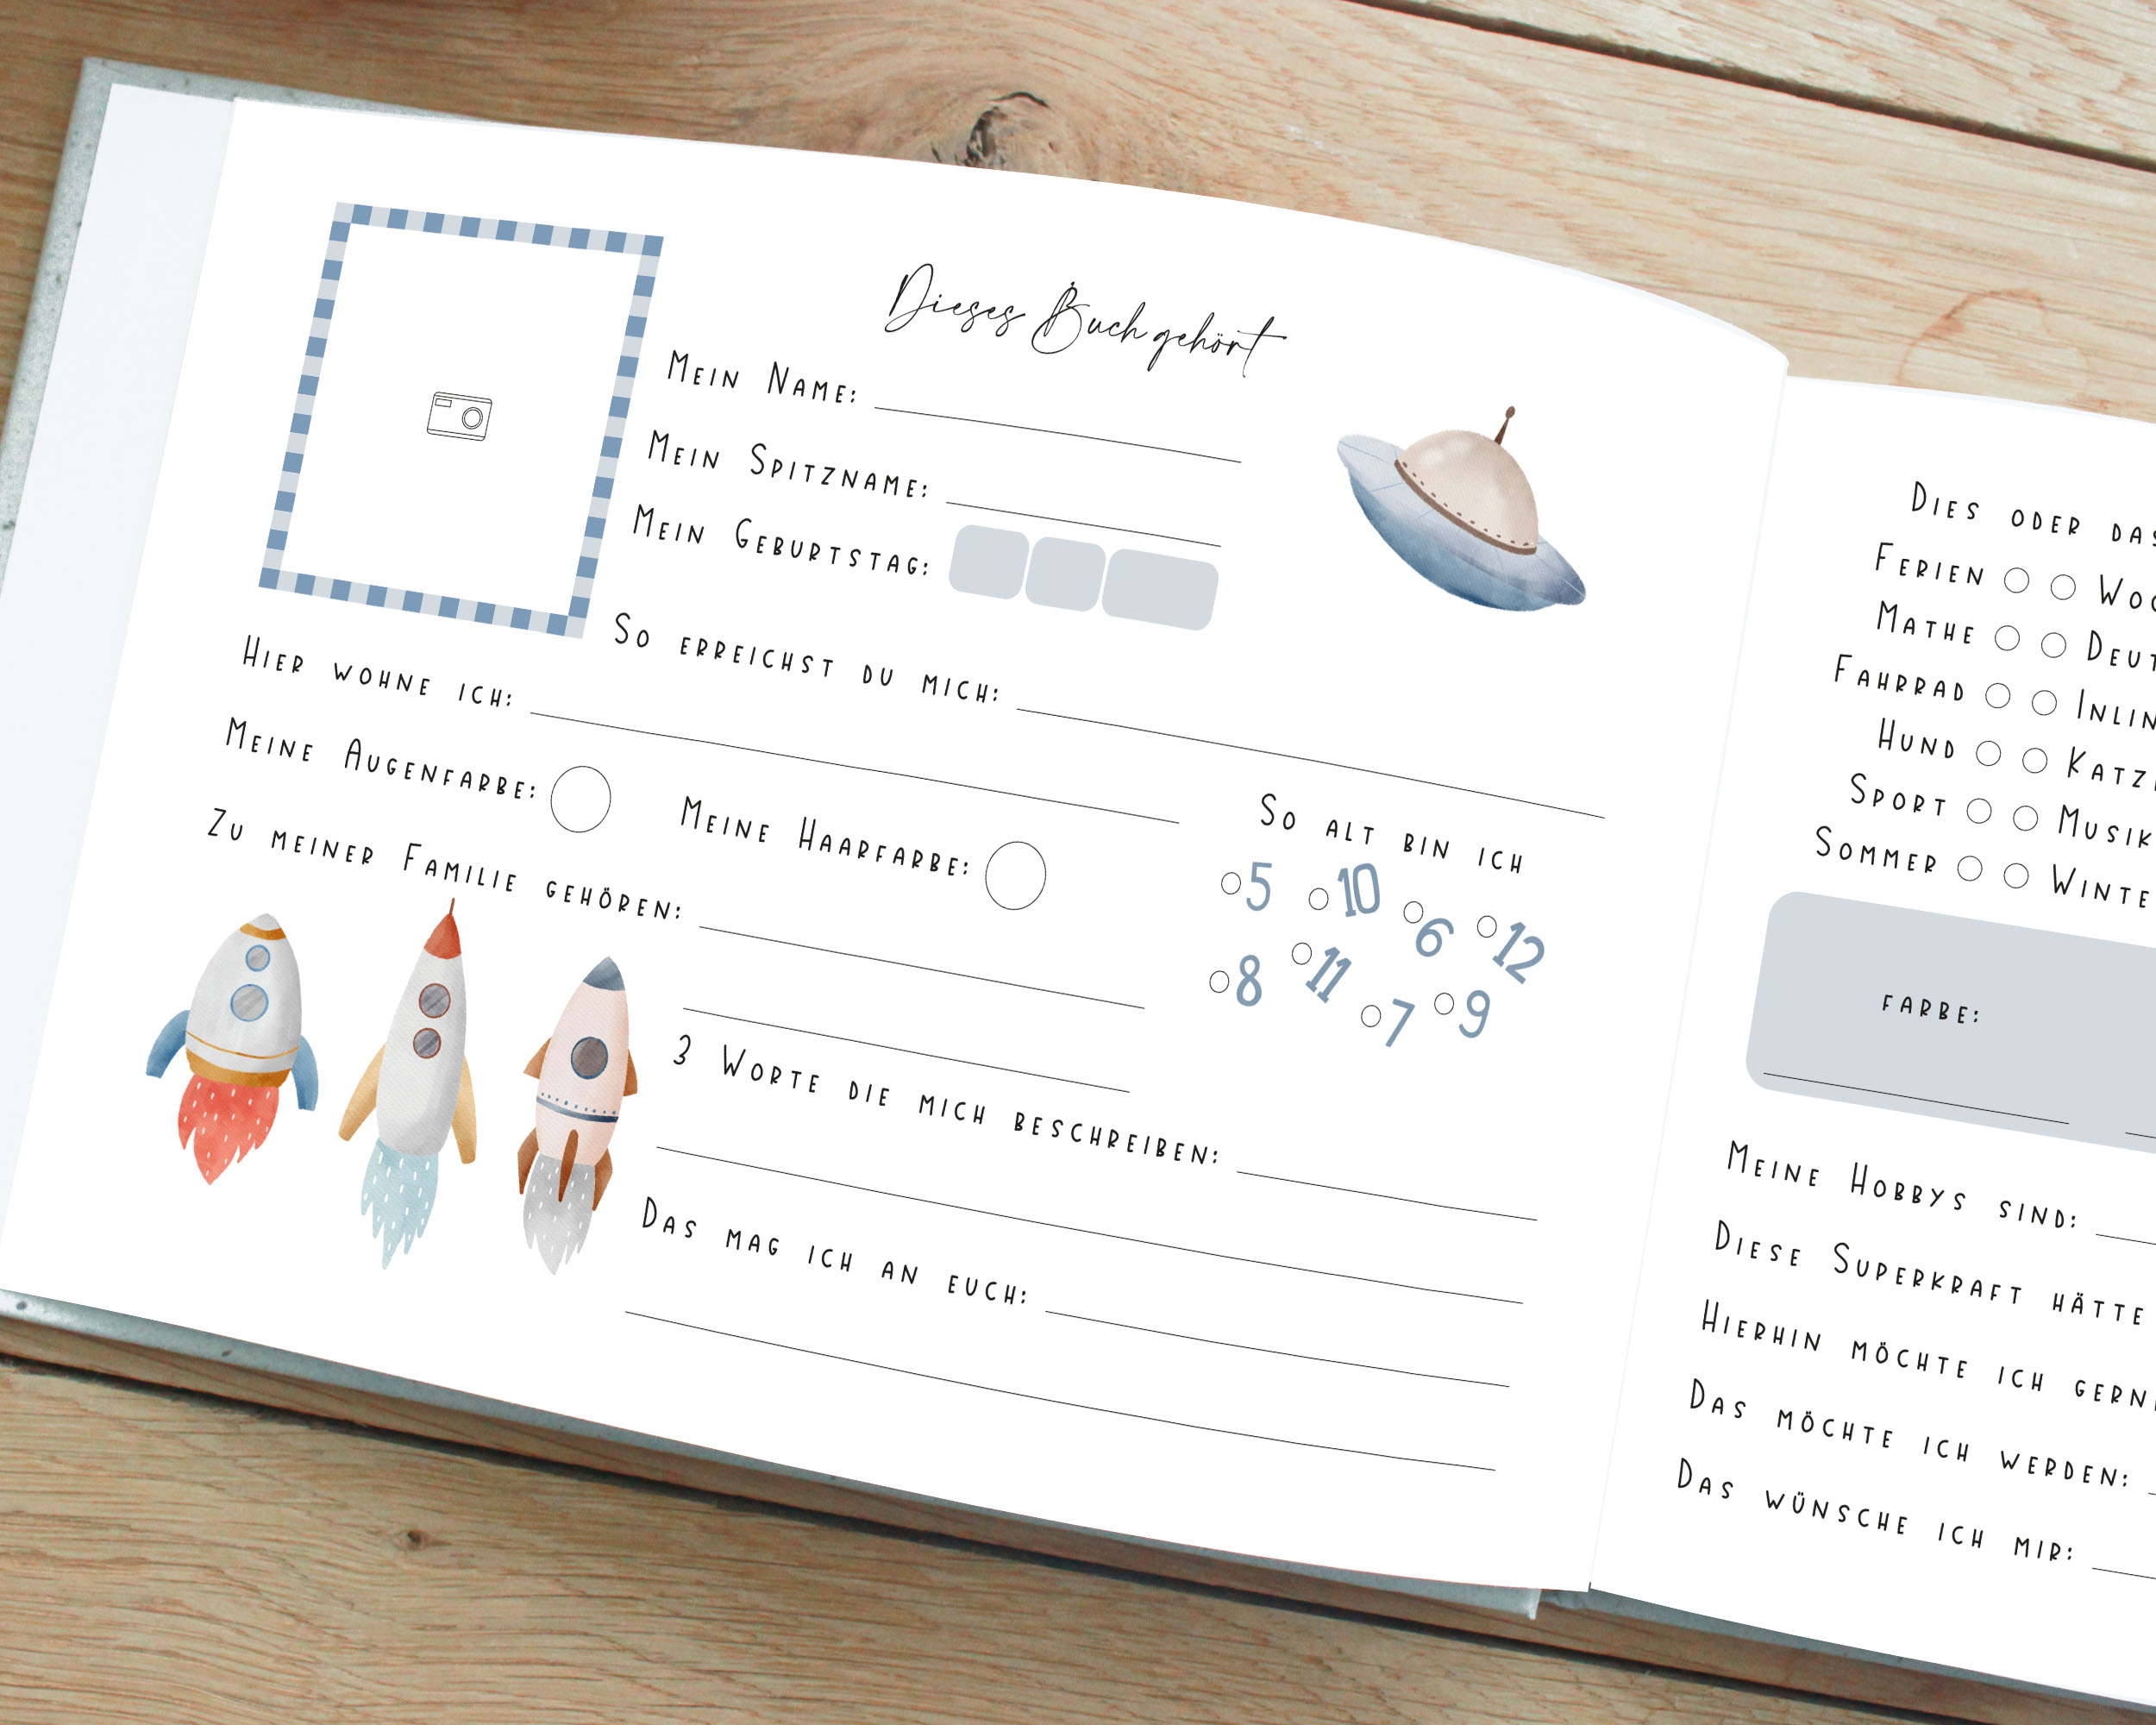 Dieses Buch gehört
Mein Name:
Mein Spitzname:
Mein Geburtstag:
So erreichst du mich:
Hier wohne ich:
Meine Augenfarbe: Meine Haarfarbe:
Zu meiner Familie gehören:
So alt bin ich
5 10 6 12
8 11 7 9
3 Worte die mich beschreiben:
Das mag ich an euch:
Dies oder das
Ferien
Mathe
Fahrrad
Hund
Sport Musik
Sommer
Farbe:
Meine Hobbys sind:
Diese Superkraft hätte
Hierhin möchte ich
Das möchte ich werden:
Das wünsche ich mir: